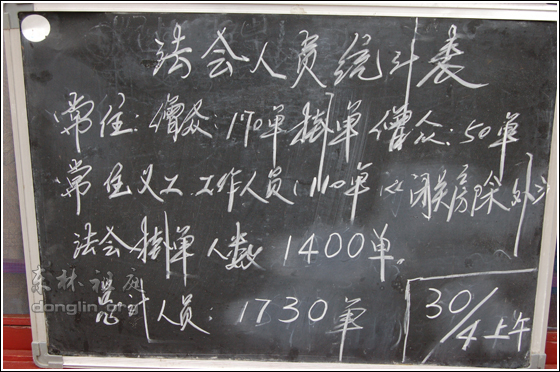 法会人员统计表
常住:僧众:170单 掛单僧众:50单
常住义工.工作人员:110单《闭关房除外》
法会掛单人数1400单。
总计人员:1730单
30/4上午
东林祖庭
donglin.org